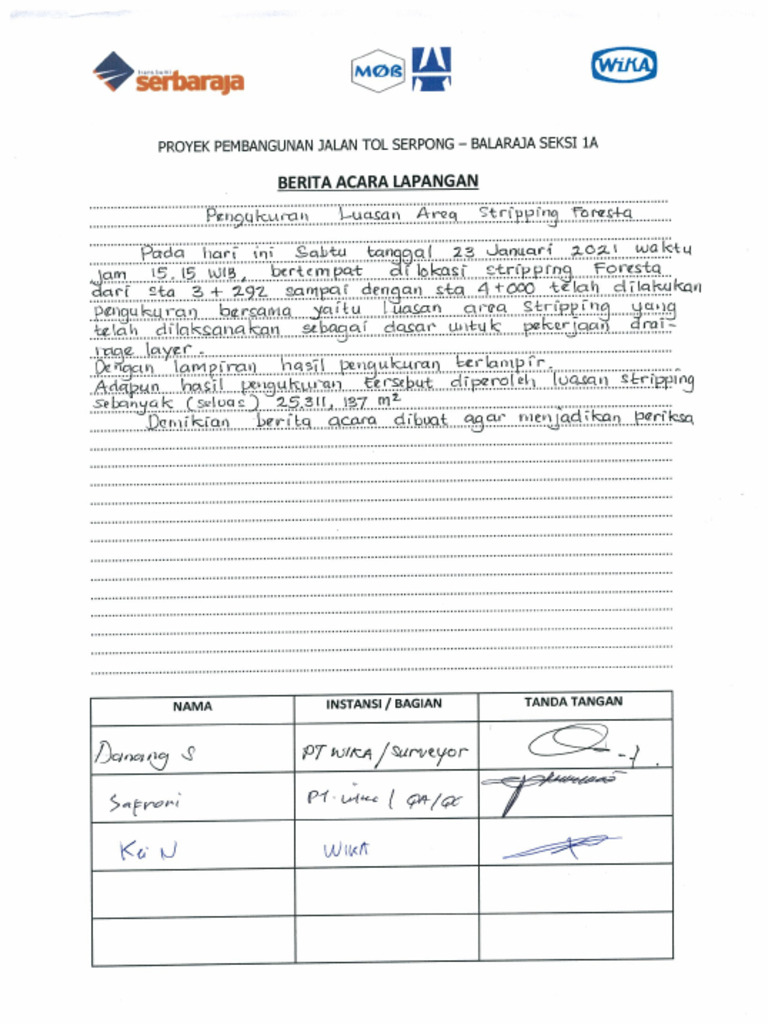 serbaraja
MØB
WIKA
PROYEK PEMBANGUNAN JALAN TOL SERPONG – BALARAJA SEKSI 1A
BERITA ACARA LAPANGAN
Pengukuran Luasan Area Stripping Foresta
Pada hari ini Sabtu tanggal 23 Januari 2021 waktu
jam 15.15 WIB, bertempat di lokasi stripping Foresta
dari sta 3+292 sampai dengan sta 4+000 telah dilakukan
pengukuran bersama yaitu luasan area stripping yang
telah dilaksanakan sebagai dasar untuk pekerjaan drai-
nage layer.
Dengan lampiran hasil pengukuran terlampir.
Adapun hasil pengukuran tersebut diperoleh luasan stripping
sebanyak (seluas) 25.311,187 m²
Demikian berita acara dibuat agar menjadikan periksa
NAMA INSTANSI / BAGIAN TANDA TANGAN
Danang S PT WIKA / Surveyor
PT. Wika / QA/QC
WIKA